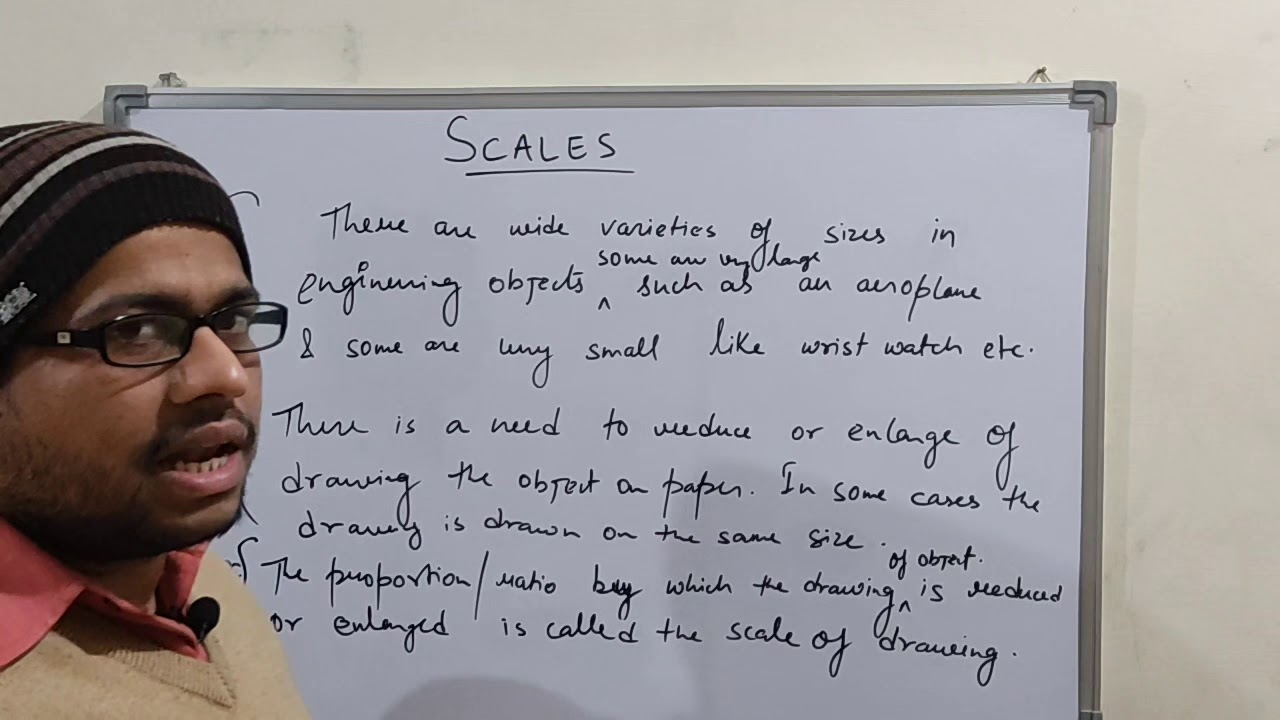 SCALES
There are wide varieties of sizes in
some are very large
engineering objects ^ such as an aeroplane
& some are very small like wrist watch etc.
There is a need to reduce or enlarge of
drawing the object on paper. In some cases the
drawing is drawn on the same size.
of object.
The proportion/ratio by which the drawing ^ is reduced
or enlarged is called the scale of drawing.